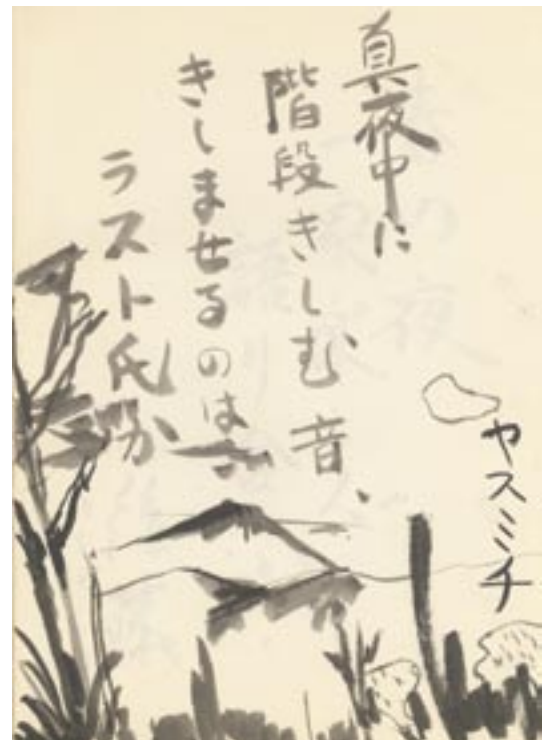 真夜中に
階段きしむ音、
きしませるのは
ラスト氏か
ヤスミチ